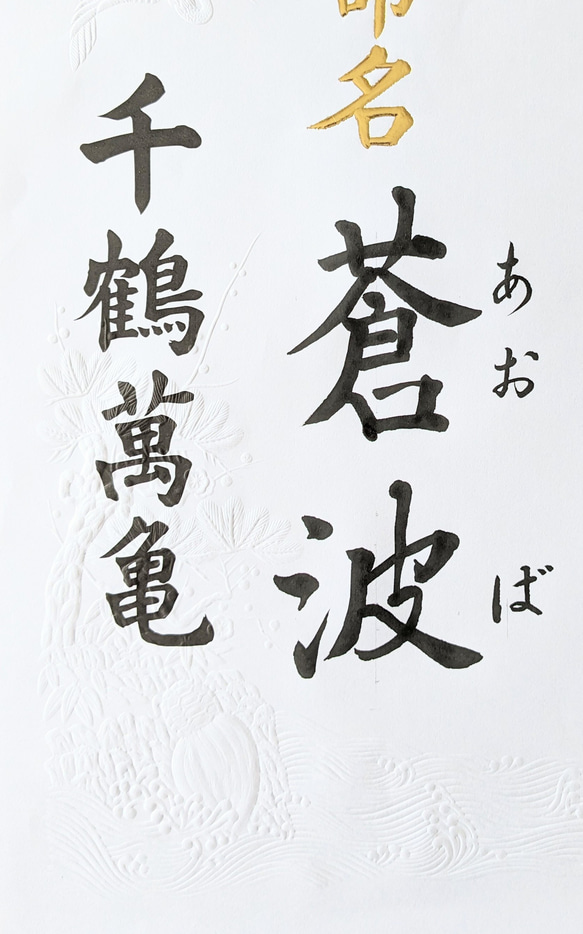 命名
蒼波
あおば
千鶴萬亀